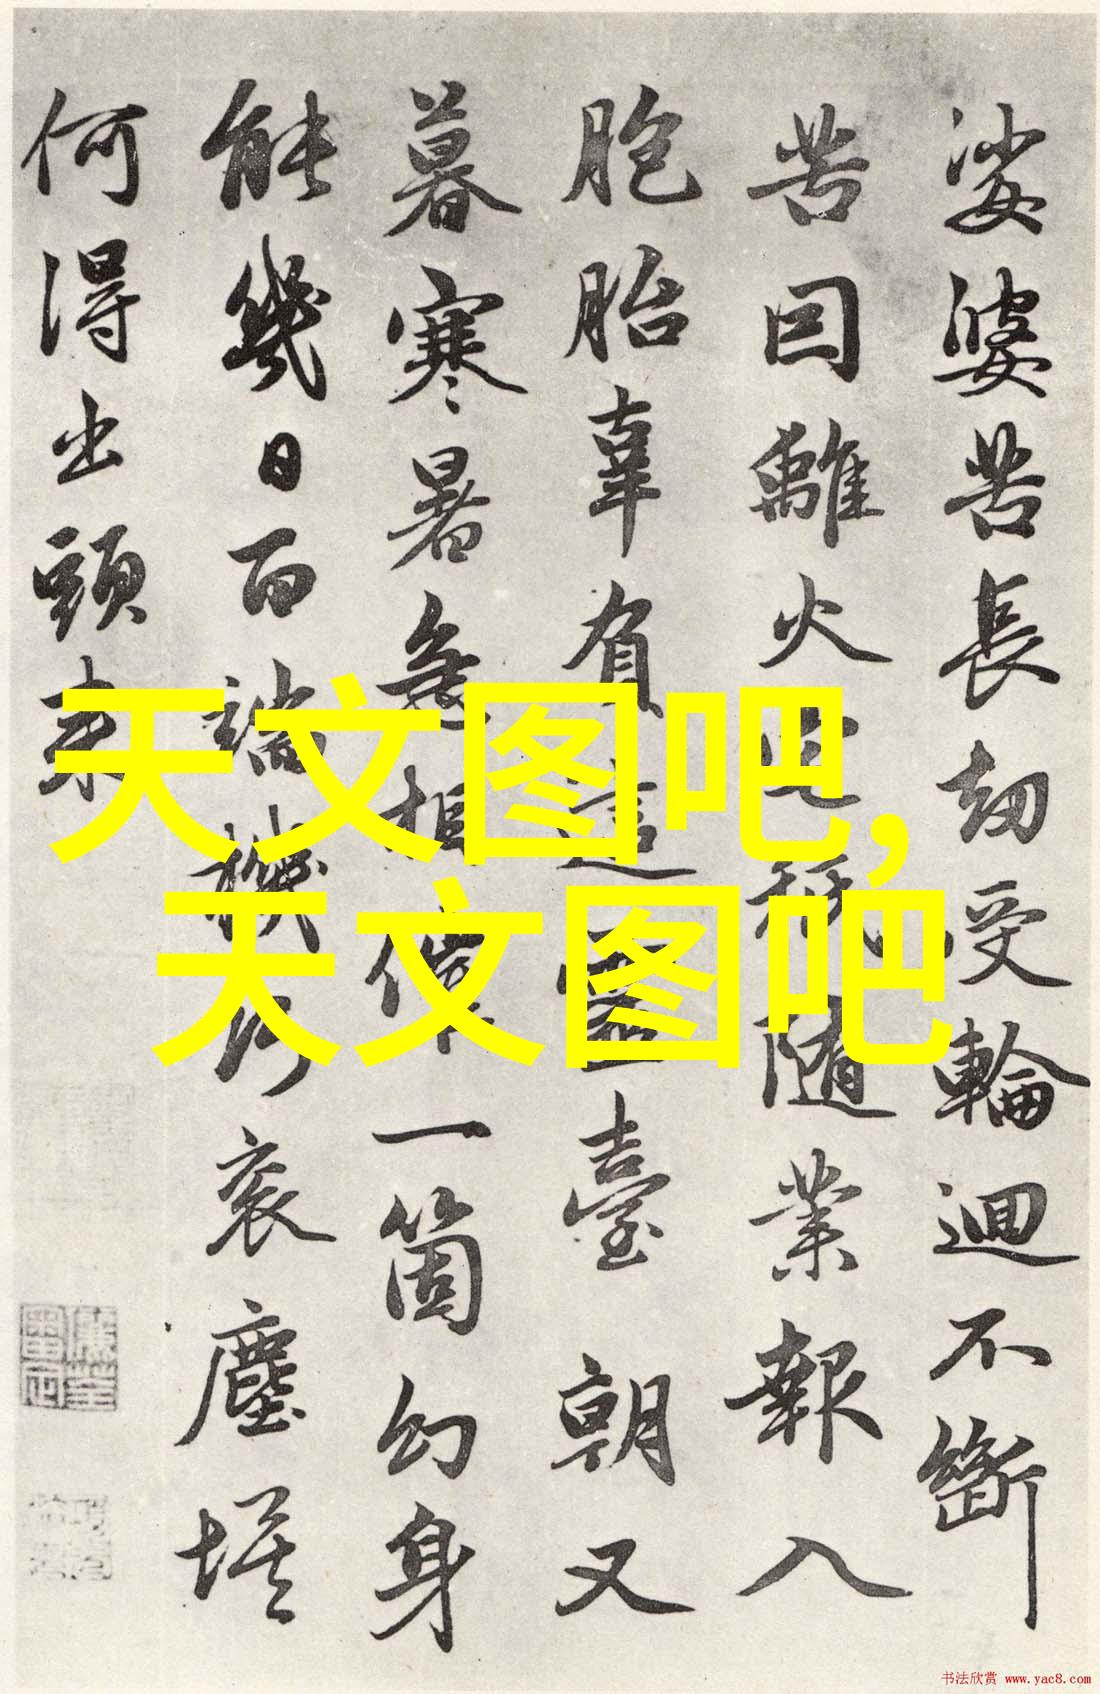 娑婆苦長劫受輪迴不斷
苦因離火宅秖隨業報入
胞胎辜負這靈臺朝又
暮寒暑急相催一箇幻身
能幾日百端機巧衮塵埃
何得出頭來
天文图吧,
天文图吧
书法欣赏 www.yac8.com